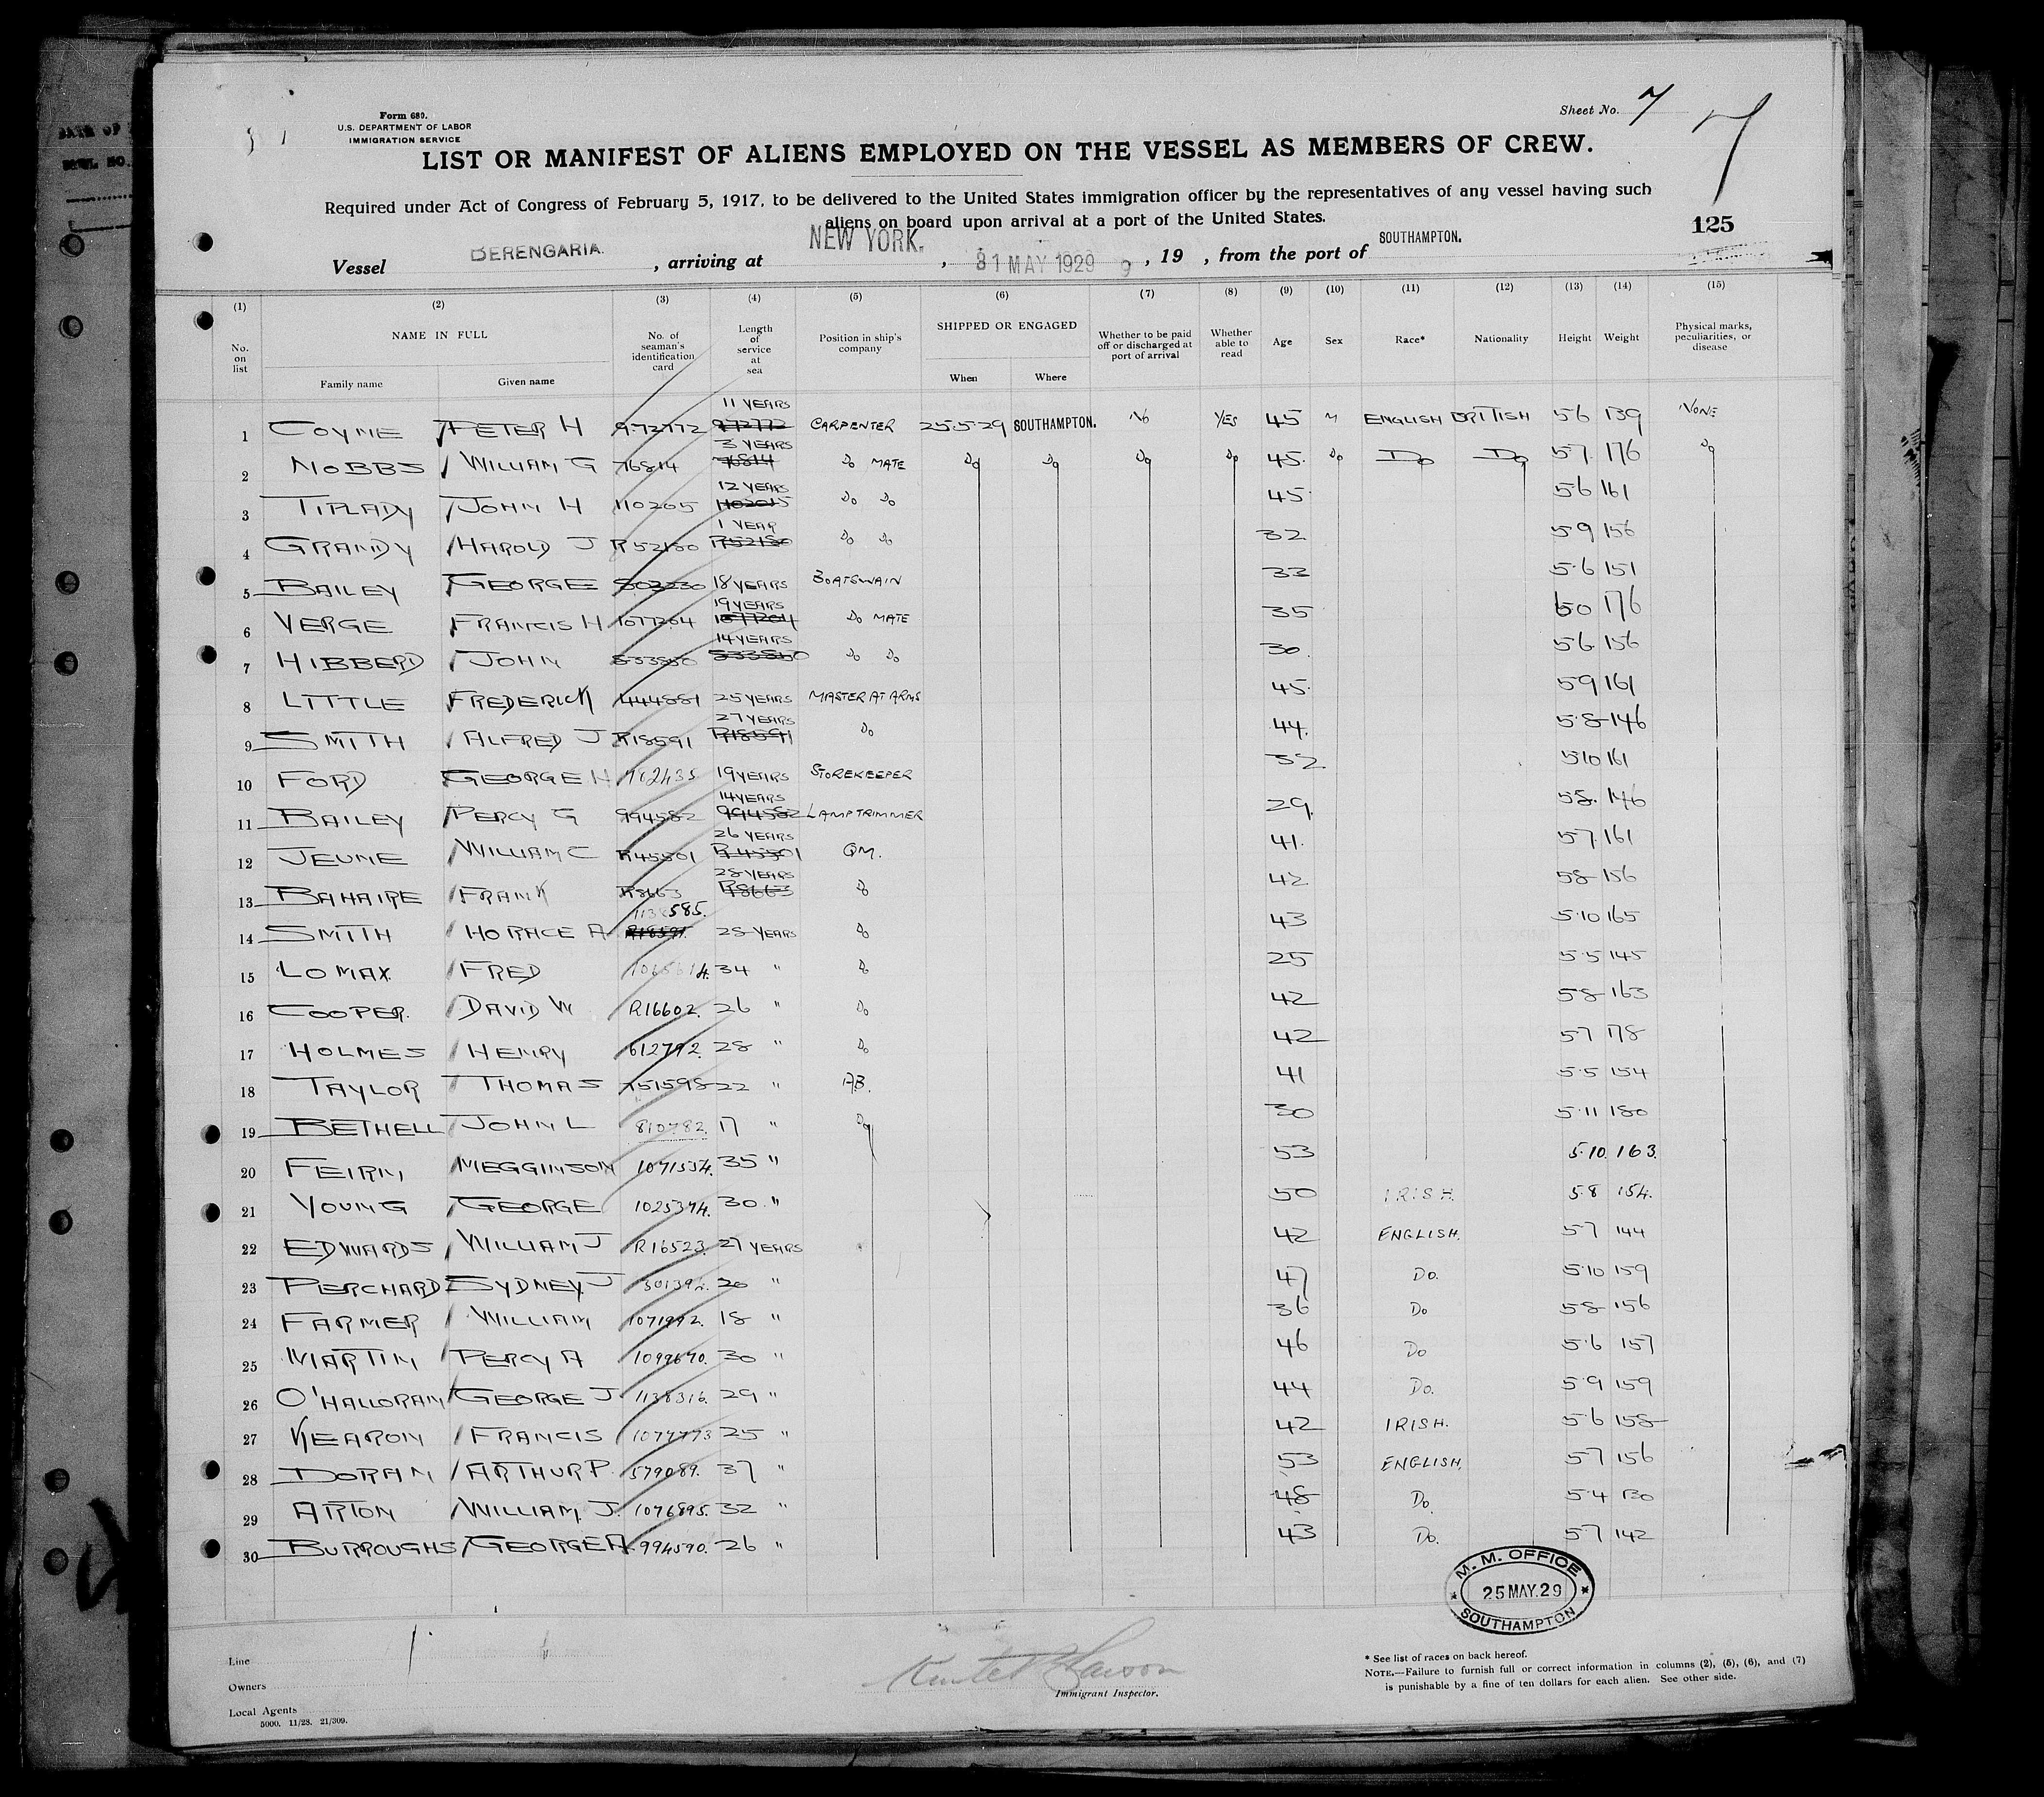 Sheet No. 7
7
Form 689.
U.S. DEPARTMENT OF LABOR
IMMIGRATION SERVICE
LIST OR MANIFEST OF ALIENS EMPLOYED ON THE VESSEL AS MEMBERS OF CREW.
Required under Act of Congress of February 5, 1917, to be delivered to the United States immigration officer by the representatives of any vessel having such
aliens on board upon arrival at a port of the United States.
125
Vessel BERENGARIA. , arriving at NEW YORK. , 31 MAY 1929 9 , 19 , from the port of SOUTHAMPTON.
(1) (2) (3) (4) (5) (6) (7) (8) (9) (10) (11) (12) (13) (14) (15)
No. on list NAME IN FULL Family name Given name No. of seaman's identification card Length of service at sea Position in ship's company SHIPPED OR ENGAGED When Where Whether to be paid off or discharged at port of arrival Whether able to read Age Sex Race* Nationality Height Weight Physical marks, peculiarities, or disease
1 COYNE PETER H 972772 972772 11 YEARS CARPENTER 25-5-29 SOUTHAMPTON. No YES 45 M ENGLISH BRITISH 56 139 NONE
2 NOBBS WILLIAM G 76814 76814 3 YEARS Do MATE Do Do Do Do 45 Do Do Do 57 176 Do
3 TIPLADY JOHN H 110265 12 YEARS Do Do 45 56 161
4 GRANDY HAROLD J R52180 R52180 1 YEAR Do Do 32 59 156
5 BAILEY GEORGE 18 YEARS BOATSWAIN 33 5.6 151
6 VERGE FRANCIS H 19 YEARS Do MATE 35 60 176
7 HIBBERD JOHN 14 YEARS Do Do 30 56 156
8 LITTLE FREDERICK 444881 25 YEARS MASTER AT ARMS 45 59 161
9 SMITH ALFRED J R18591 R18591 27 YEARS Do 44 5.8 146
10 FORD GEORGE H 19 YEARS STOREKEEPER 32 510 161
11 BAILEY PERCY G 994582 994582 14 YEARS LAMPTRIMMER 29 58 146
12 JEUNE WILLIAM C R45501 R45501 26 YEARS QM. 41 57 161
13 BAHAIRE FRANK R8663 R8663 28 YEARS Do 42 58 156
14 SMITH HORACE A R18591 28 YEARS Do 43 5.10 165
15 LOMAX FRED 34 " Do 25 5.5 145
16 COOPER. DAVID W R16602. 26 " Do 42 58 163
17 HOLMES HENRY 612792. 28 " Do 42 57 178
18 TAYLOR THOMAS 751598 22 " A.B. 41 5.5 154
19 BETHELL JOHN L 810782. 17 " Do 30 5.11 180
20 FEIRN MEGGINSON 1071534. 35 " 53 5.10. 163.
21 YOUNG GEORGE 1025374. 30 " 50 IRISH. 5.8 154.
22 EDWARDS WILLIAM J R16523. 27 YEARS 42 ENGLISH. 57 144
23 PERCHARD SYDNEY J 20 " 47 Do. 5.10 159
24 FARMER WILLIAM 1071992. 18 " 36 Do 58 156
25 MARTIN PERCY A 1099670. 30 " 46 Do 5.6 157
26 O'HALLORAN GEORGE J. 1138316. 29 " 44 Do. 5.9 159
27 KEARON FRANCIS 25 " 42 IRISH. 5.6 158
28 DORAN ARTHUR P. 579089. 37 " 53 ENGLISH. 57 156
29 ARTON WILLIAM. J. 1076895. 32 " 48 Do 5.4 130
30 BURROUGHS GEORGE A. 994590. 26 " 43 Do. 57 142
M. M. OFFICE
25 MAY. 29
SOUTHAMPTON
Line
Owners
Local Agents
5000. 11/28. 21/309.
Immigrant Inspector.
* See list of races on back hereof.
NOTE.—Failure to furnish full or correct information in columns (2), (5), (6), and (7)
is punishable by a fine of ten dollars for each alien. See other side.